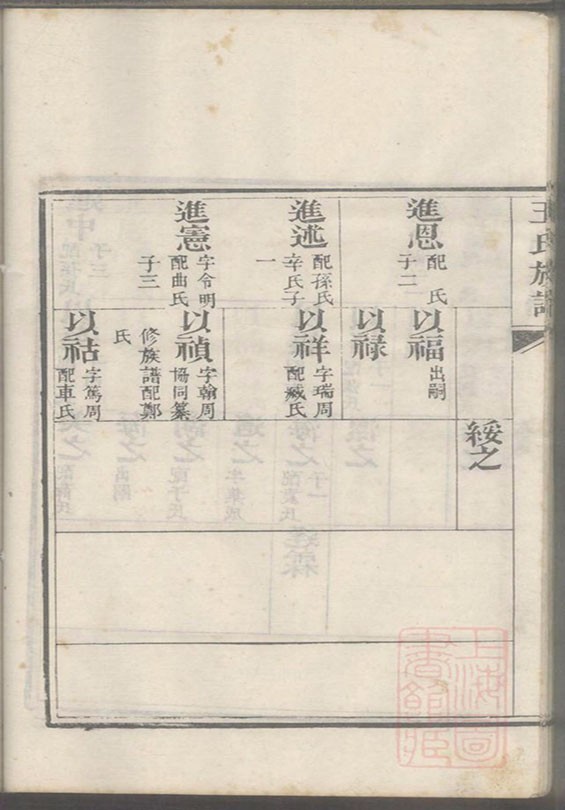 王氏族譜
綏之
進恩 配 氏
子二
以福 出嗣
以祿
進述 配孫氏
辛氏子
一
以祥 字瑞周
配臧氏
進憲 字令明
配曲氏
子三
以禎 字翰周
協同纂
修族譜配鄭
氏
以祜 字篤周
配車氏
上海圖書館藏